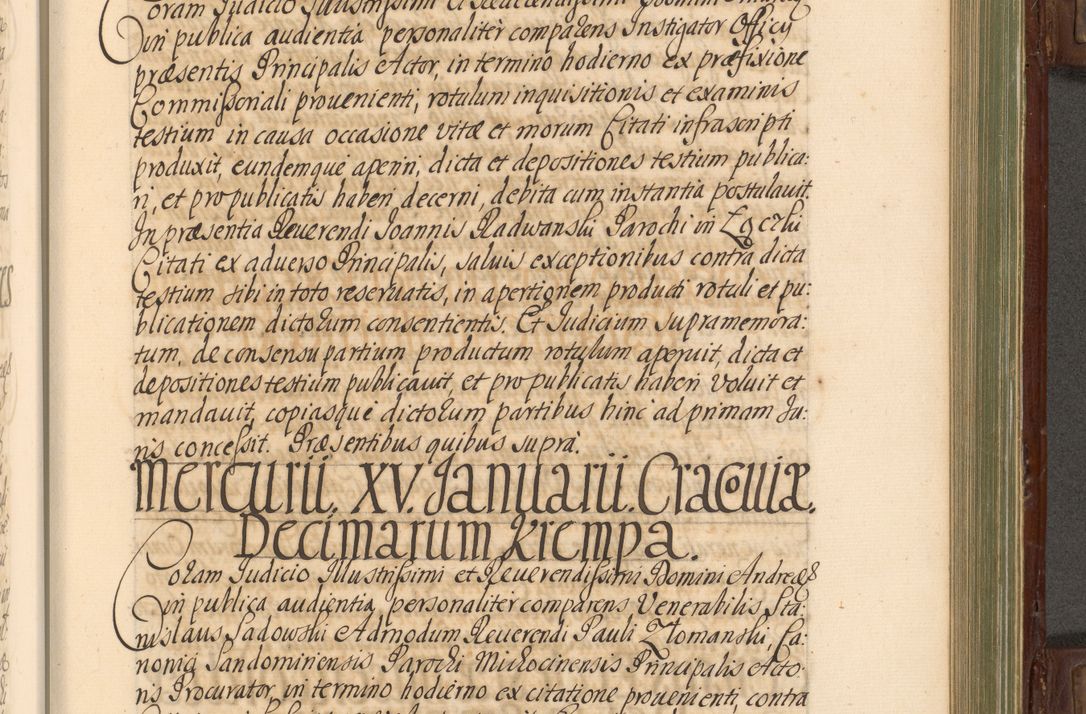 Coram Judicio Illustrissimi et Reverendissimi Domini Andreæ
in publica audientia personaliter comparens Instigator Officij
præsentis Principalis Actor, in termino hodierno ex præfixione
Commissoriali prouenienti, rotulum inquisitionis et examinis
testium in causa occasione vitæ et morum Citati infrascripti
produxit, eundemque aperiri, dicta et depositiones testium publica:
ri, et pro publicatis haberi decerni, debita cum instantia postulauit.
In præsentia Reuerendi Joannis Radwanski Parochi in Łączki
Citati ex aduerso Principalis, saluis exceptionibus contra dicta
testium sibi in toto reseruatis, in apertionem producti rotuli et pu:
blicationem dictorum consentientis. Et Judicium supramemora:
tum, de consensu partium productum rotulum aperuit, dicta et
depositiones testium publicauit, et pro publicatis haberi voluit et
mandauit, copiasque dictorum partibus hinc ad primam Ju:
ris concessit. Præsentibus quibus supra.
Mercurii. XV. Januarii. Cracouiæ.
Decimarum Krempa.
Coram Judicio Illustrissimi et Reuerendissimi Domini Andreæ
in publica audientia, personaliter comparens Venerabilis Sta:
nislaus Sadowski Admodum Reuerendi Pauli Złomanski, Ca:
nonici Sandomiriensis Parochi Michocinensis Principalis Acto:
ris Procurator, in termino hodierno ex citatione prouenienti, contra